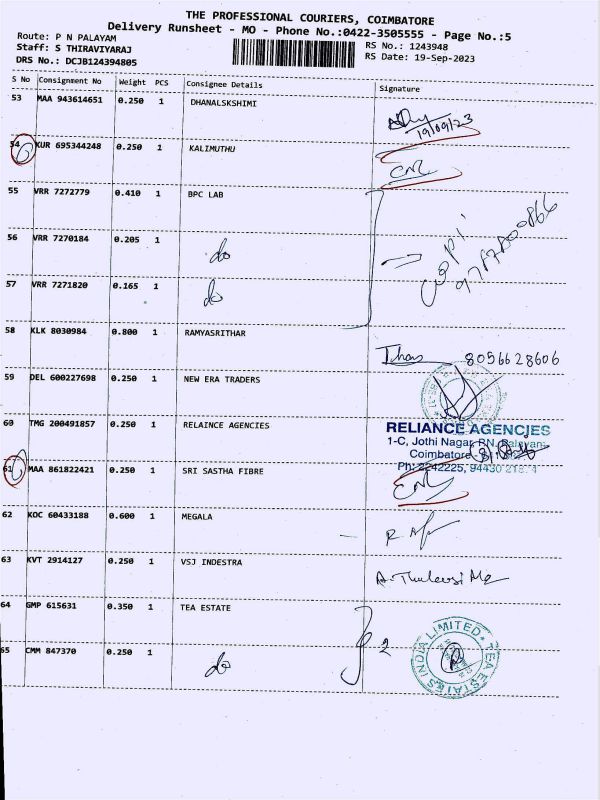 THE PROFESSIONAL COURIERS, COIMBATORE
Delivery Runsheet - MO - Phone No.:0422-3505555 - Page No.:5
Route: P N PALAYAM
Staff: S THIRAVIYARAJ
DRS No.: DCJB124394805
RS No.: 1243948
RS Date: 19-Sep-2023
S No Consignment No Weight PCS Consignee Details Signature
53 MAA 943614651 0.250 1 DHANALSKSHIMI
19/09/23
54 KUR 695344248 0.250 1 KALIMUTHU
55 VRR 7272779 0.410 1 BPC LAB
56 VRR 7270184 0.205 1 do
57 VRR 7271820 0.165 1 do
58 KLK 8030984 0.800 1 RAMYASRITHAR
8056628606
59 DEL 600227698 0.250 1 NEW ERA TRADERS
60 TMG 200491857 0.250 1 RELAINCE AGENCIES
RELIANCE AGENCIES
1-C, Jothi Nagar, P.N. Palayam
Coimbatore
Ph: 2242225, 94430
61 MAA 861822421 0.250 1 SRI SASTHA FIBRE
62 KOC 60433188 0.600 1 MEGALA
63 KVT 2914127 0.250 1 VSJ INDESTRA
64 GMP 615631 0.350 1 TEA ESTATE
2
TEA ESTATES INDIA LIMITED
65 CMM 847370 0.250 1 do